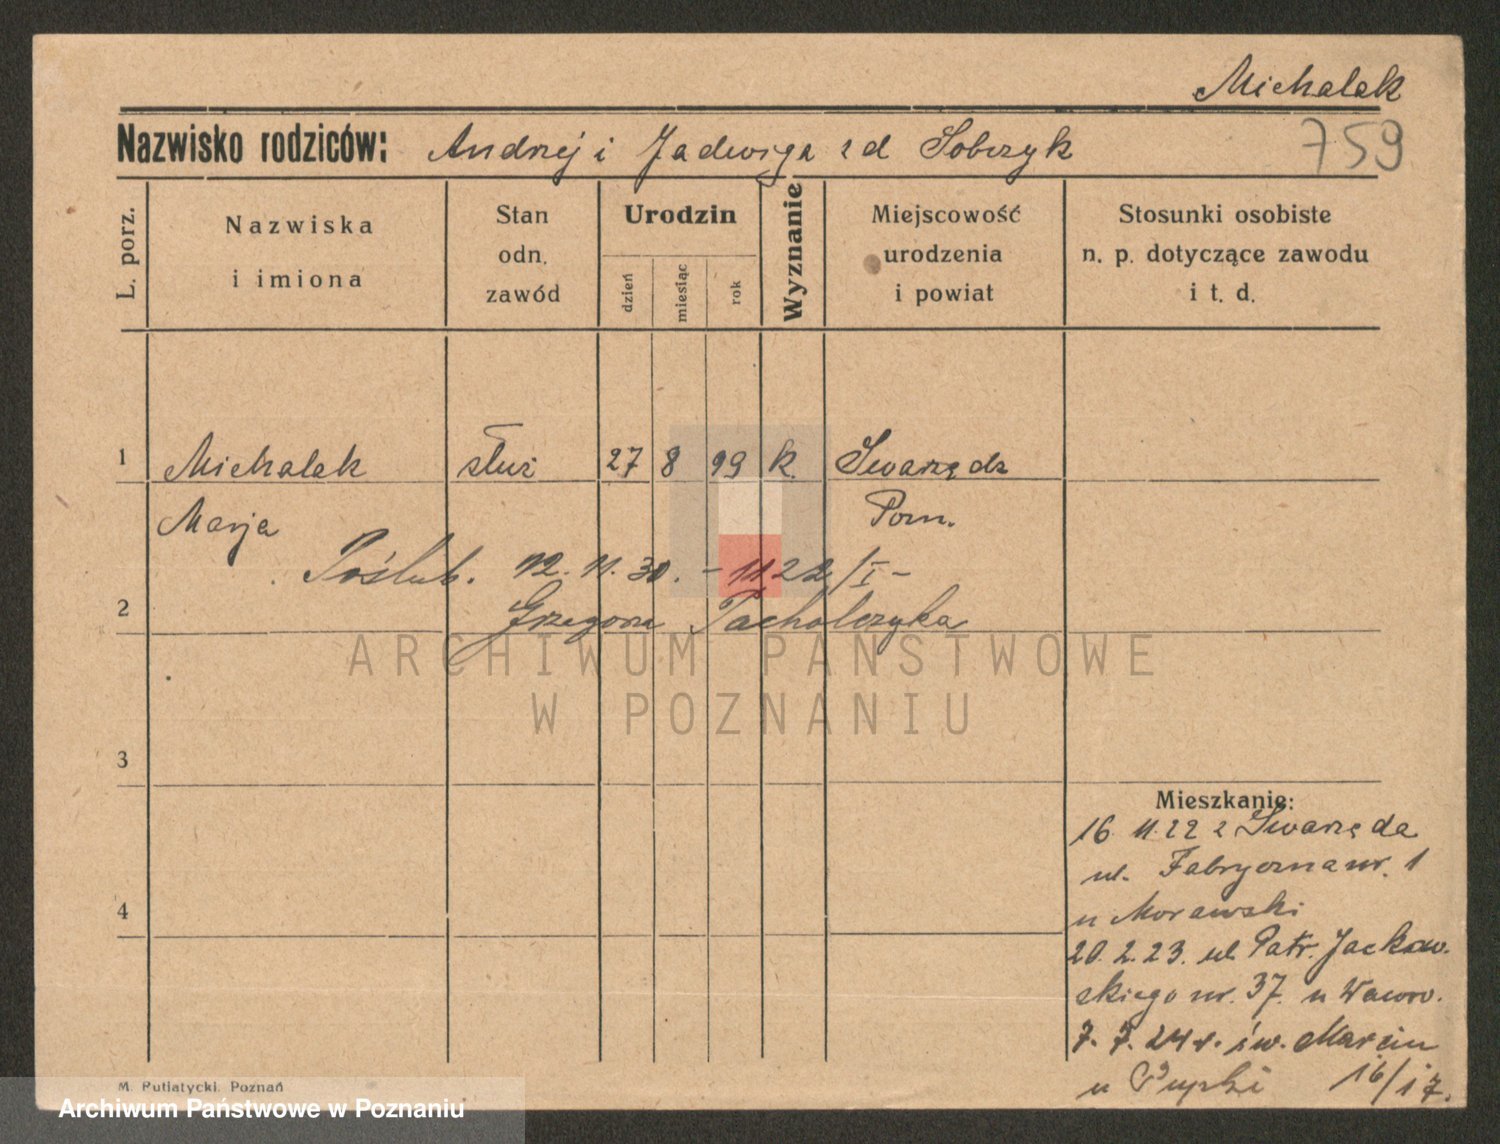 Michalak
759
Nazwisko rodziców: Andrzej i Jadwiga zd Sobczyk
L. porz.
Nazwiska
i imiona
Stan
odn.
zawód
Urodzin
dzień
miesiąc
rok
Wyznanie
Miejscowość
urodzenia
i powiat
Stosunki osobiste
n. p. dotyczące zawodu
i t. d.
1 Michalak służ 27 8 99 k. Swarzędz
Marja Pozn.
Poślub. 12. 11. 30. - 1122/I -
2 Grzegorza Pacholczyka
ARCHIWUM PAŃSTWOWE
W POZNANIU
3
Mieszkanie:
16. 11. 22 z Swarzęda
ul. Fabryczna nr. 1
4
u Morawski
20. 2. 23. ul. Patr. Jackow.
skiego nr. 37. u Wawro.
7. 7. 24 r. św. Marcin
u 16/17.
M. Putiatycki, Poznań
Archiwum Państwowe w Poznaniu